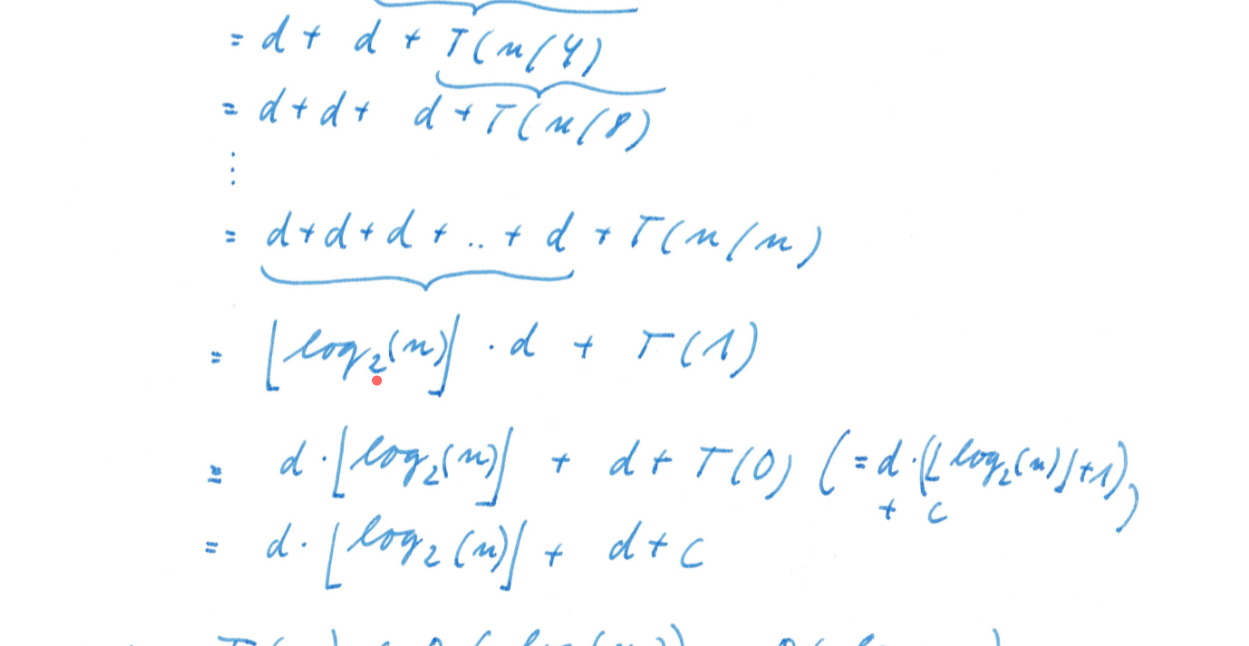 = d + d + T(n/4)
= d+d+ d + T(n/8)
⋮
= d+d+d + .. + d + T(n/n)
= ⌊log₂(n)⌋ · d + T(1)
= d · ⌊log₂(n)⌋ + d + T(0) (= d · (⌊log₂(n)⌋+1) + c)
= d · ⌊log₂(n)⌋ + d + c